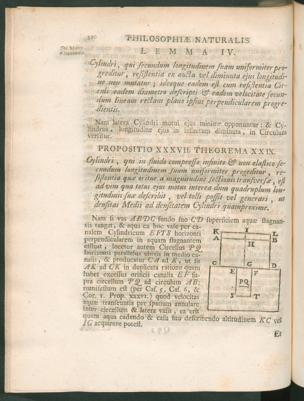 320 PHILOSOPHIÆ NATURALIS
De Motu Corporum
LEMMA IV.
Cylindri, qui secundum longitudinem suam uniformiter pro-
greditur, resistentia ex aucta vel diminuta ejus longitudi-
ne non mutatur; ideoque eadem est cum resistentia Cir-
culi eadem diametro descripti & eadem velocitate secun-
dum lineam rectam plano ipsius perpendicularem progre-
dientis.
Nam latera Cylindri motui ejus minime opponuntur: & Cy-
lindrus, longitudine ejus in infinitum diminuta, in Circulum
vertitur.
PROPOSITIO XXXVII. THEOREMA XXIX.
Cylindri, qui in fluido compresso infinito & non elastico se-
cundum longitudinem suam uniformiter progreditur, re-
sistentia quæ oritur a magnitudine sectionis transversæ, est
ad vim qua totus ejus motus interea dum quadruplum lon-
gitudinis suæ describit, vel tolli possit vel generari, ut
densitas Medii ad densitatem Cylindri quamproxime.
Nam si vas ABDC fundo suo CD superficiem aquæ stagnan-
tis tangat, & aqua ex hoc vase per ca-
nalem Cylindricum EFTS horizonti
perpendicularem in aquam stagnantem
effluat, locetur autem Circellus PQ
horizonti parallelus ubivis in medio ca-
nalis, & producatur CA ad K, ut sit
AK ad CK in duplicata ratione quam
habet excessus orificii canalis EF su-
pra circellum PQ ad circulum AB:
manifestum est (per Cas. 5, Cas. 6, &
Cor. 1. Prop. XXXVI.) quod velocitas
aquæ transeuntis per spatium annulare
inter circellum & latera vasis, ea erit
quam aqua cadendo & casu suo describendo altitudinem KC vel
IG acquirere potest.
Et
K I L
A B
H
C E G F D
PQ
S T